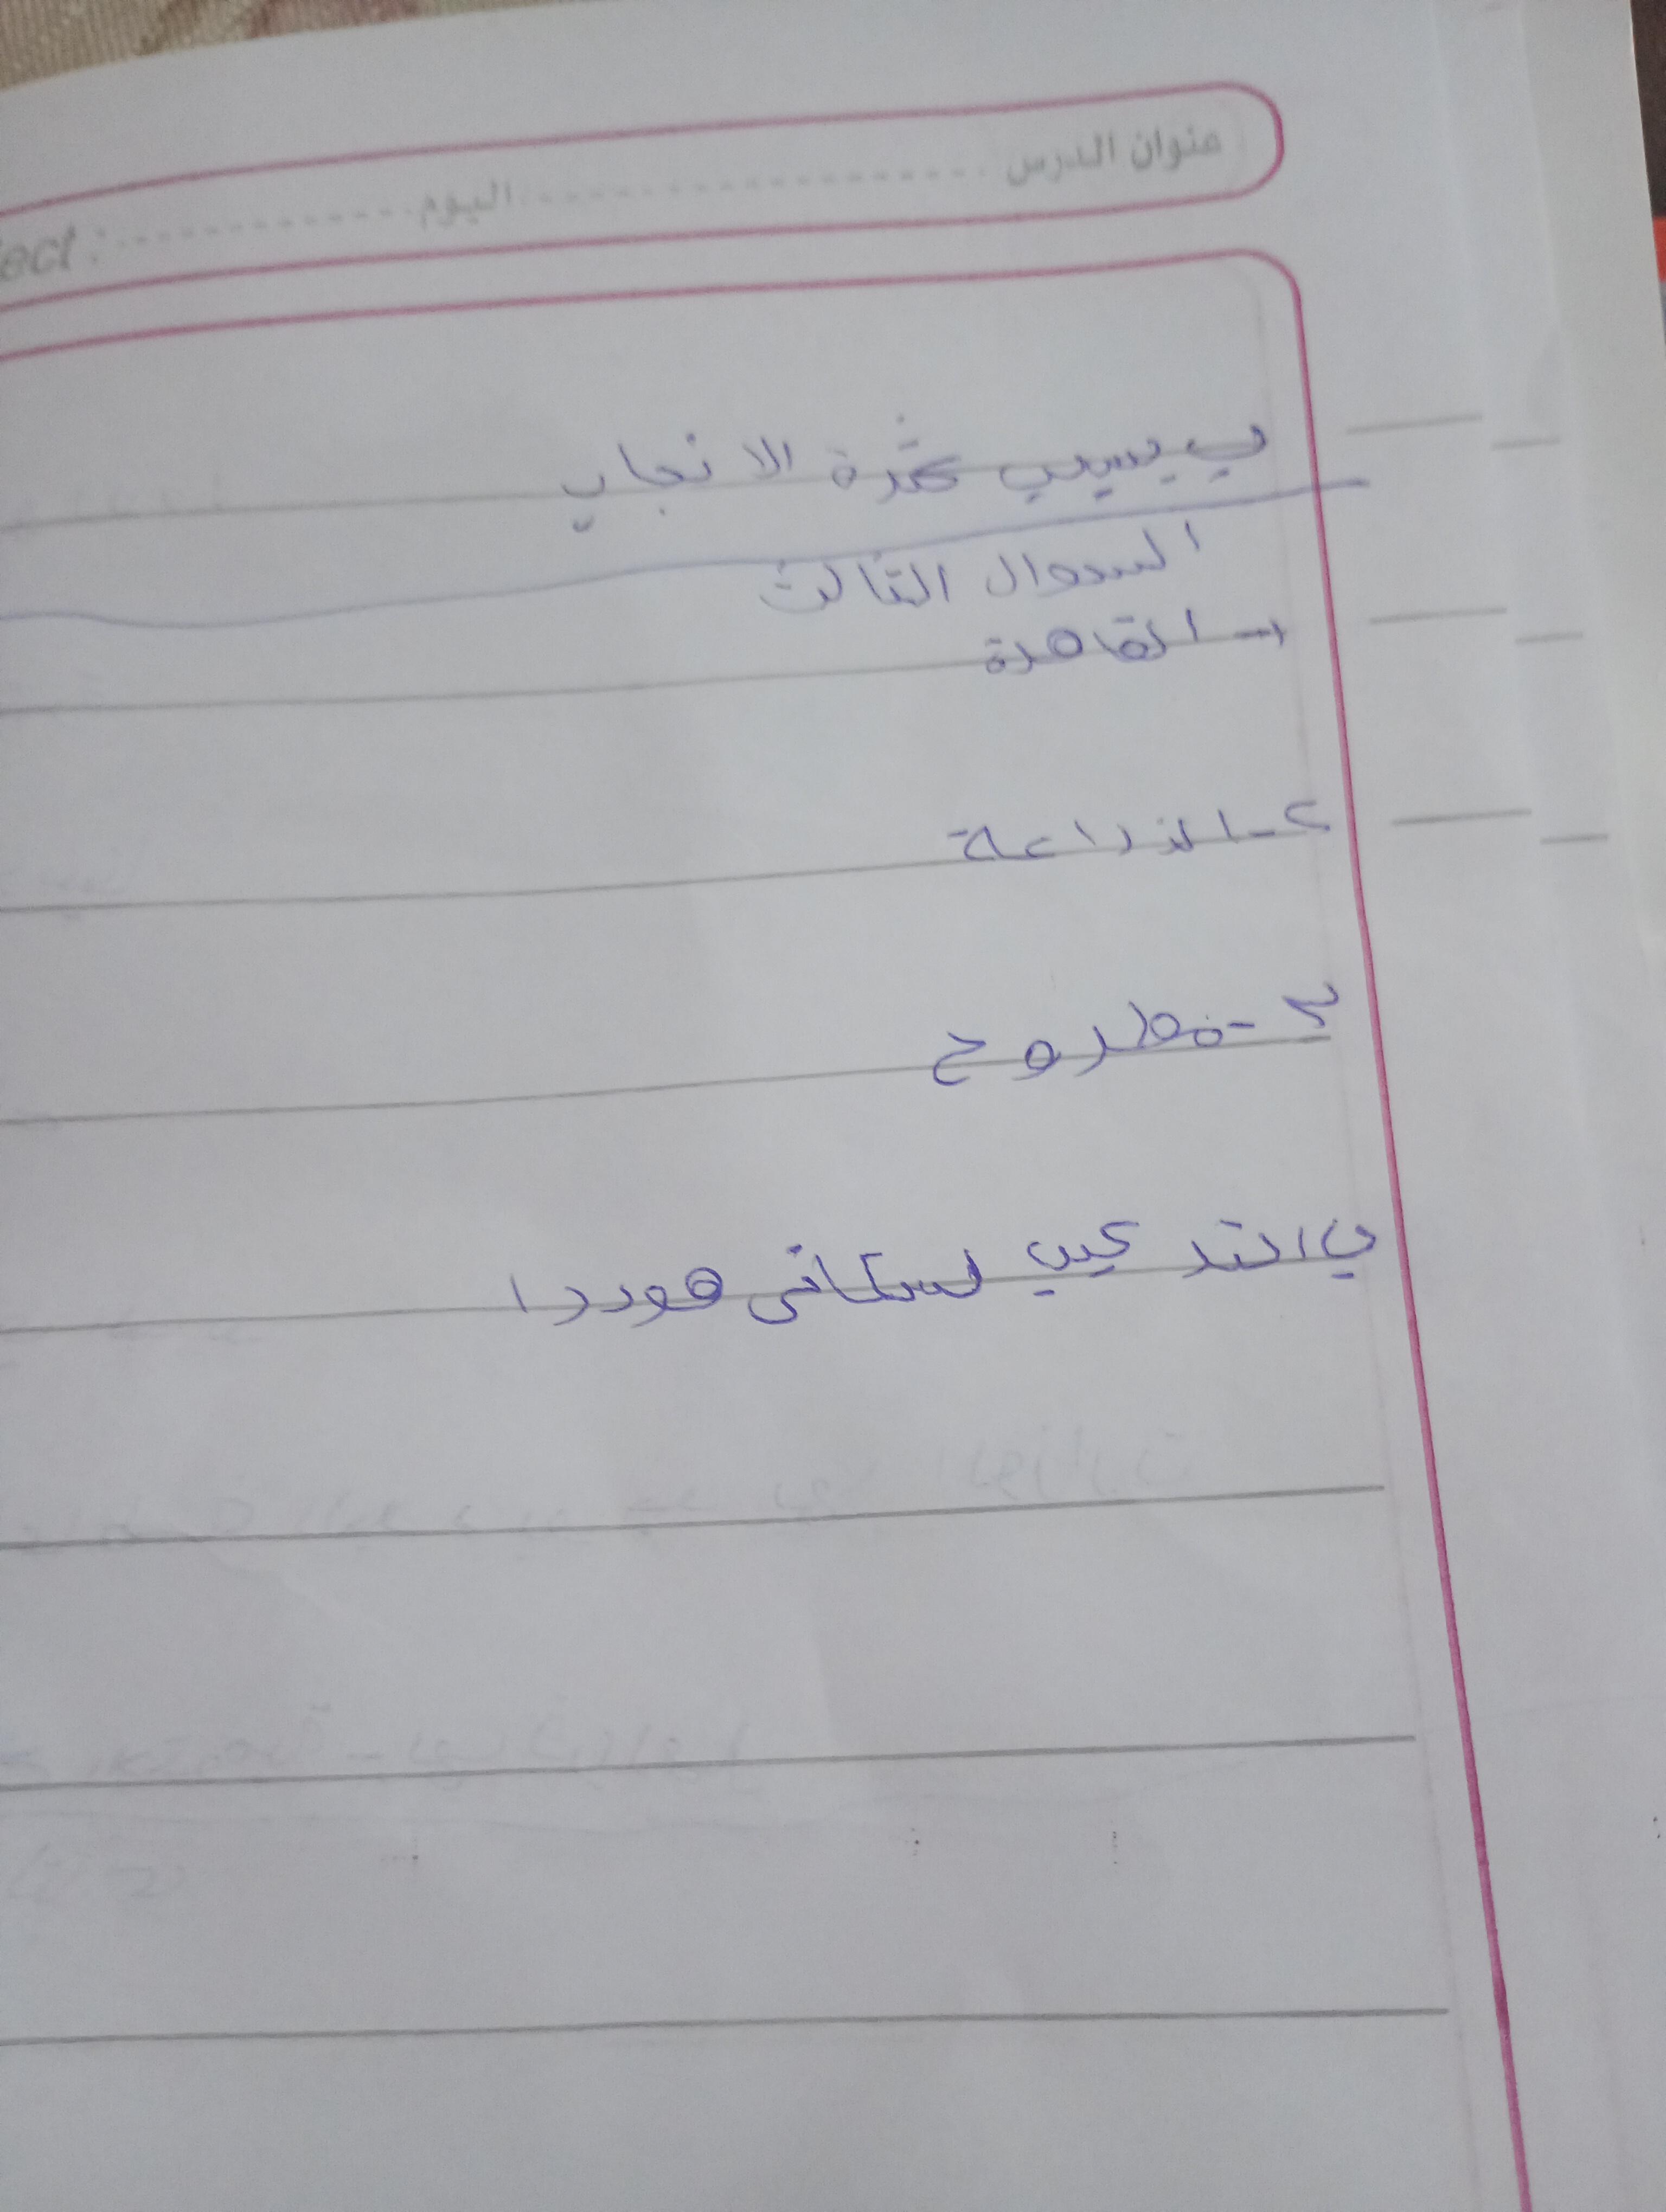 عنوان الدرس ........................ اليوم ................ect :
ب بسبب كثرة الانجاب
السوال الثالث
١- القاهرة
٢- الزراعة
٣- مطروح
ب التركيب السكانى